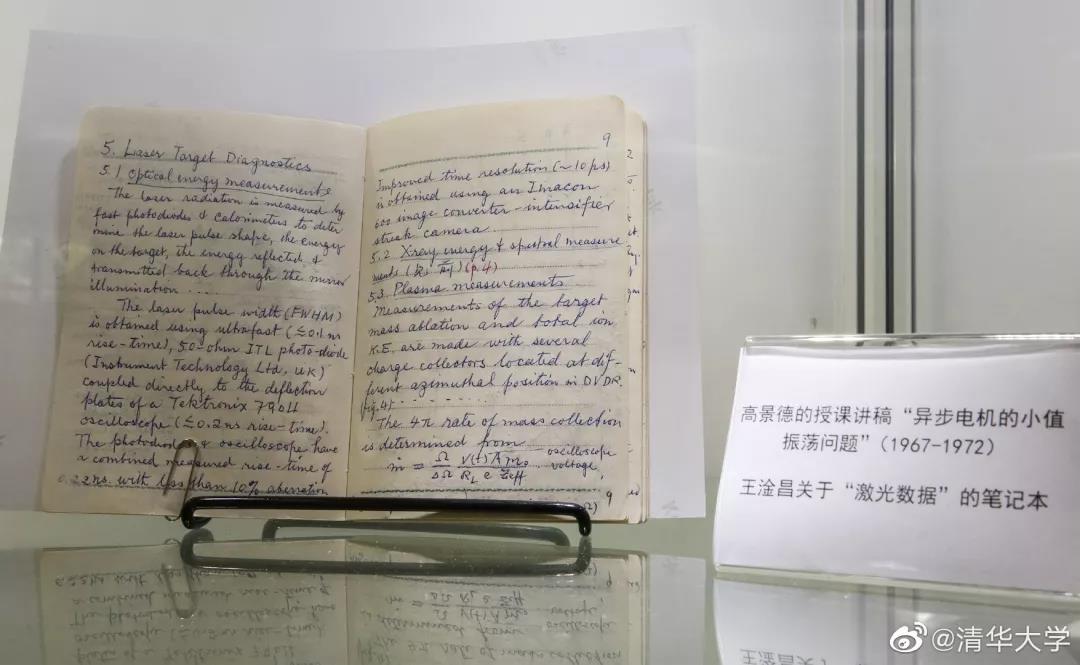 5. Laser Target Diagnostics
5.1 Optical energy measurements
The laser radiation is measured by
fast photodiodes & calorimeters to deter
mine the laser pulse shape, the energy
on the target, the energy reflected &
transmitted back through the mirror
illumination .....
The laser pulse width (FWHM)
is obtained using ultrafast (≦0.1 ns
rise-time), 50-ohm ITL photo-diode
(Instrument Technology Ltd, UK)
coupled directly to the deflection
plates of a Tektronix 7904
oscilloscope (≦0.2 ns rise-time).
The photodiode & oscilloscope have
a combined measured rise-time of
0.22ns with less than 10% aberration
9
Improved time resolution (~10 ps)
is obtained using an Imacon
600 image converter-intensifier
streak camera
5.2 Xray energy & spectral measure
ments (p.4)
5.3 Plasma measurements
Measurements of the target
mass ablation and total ion
K.E. are made with several
charge collectors located at dif-
ferent azimuthal position in DVDR.
(fig. 4)
The 4π rate of mass collection
is determined from
oscilloscope
ṁ = Ω/ΔΩ V(t) A m₀/R_L e Z_eff voltage,
9
高景德的授课讲稿“异步电机的小值
振荡问题”（1967-1972）
王淦昌关于“激光数据”的笔记本
@清华大学